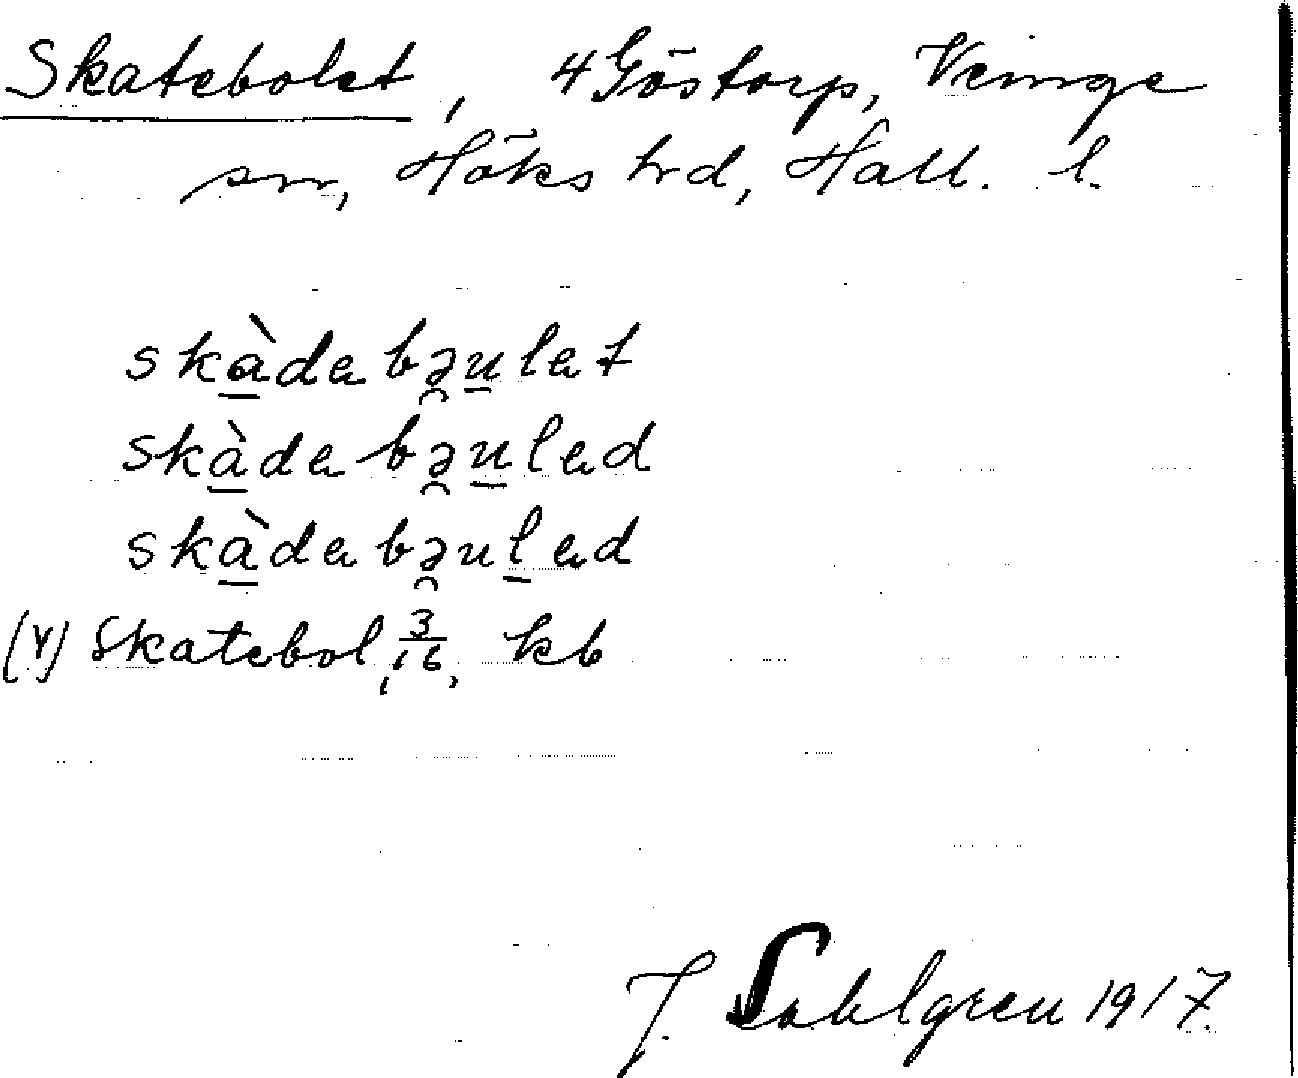 Skatebolet, 4 Göstorp, Veinge
sn, Höks hrd, Hall. l.
skàdabəulat
skàdabəulad
skàdabəulad
(Y) Skatebol, 3/16, kb
J. Sahlgren 1917.